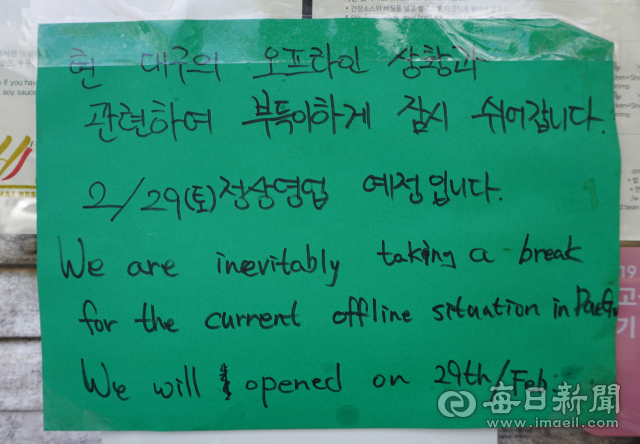 현 대구의 오프라인 상황과
관련하여 부득이하게 잠시 쉬어갑니다.
2/29(토)정상영업 예정입니다.
We are inevitably taking a break
for the current offline situation in
We will opened on 29th/Feb.
每日新聞
www.imaeil.com